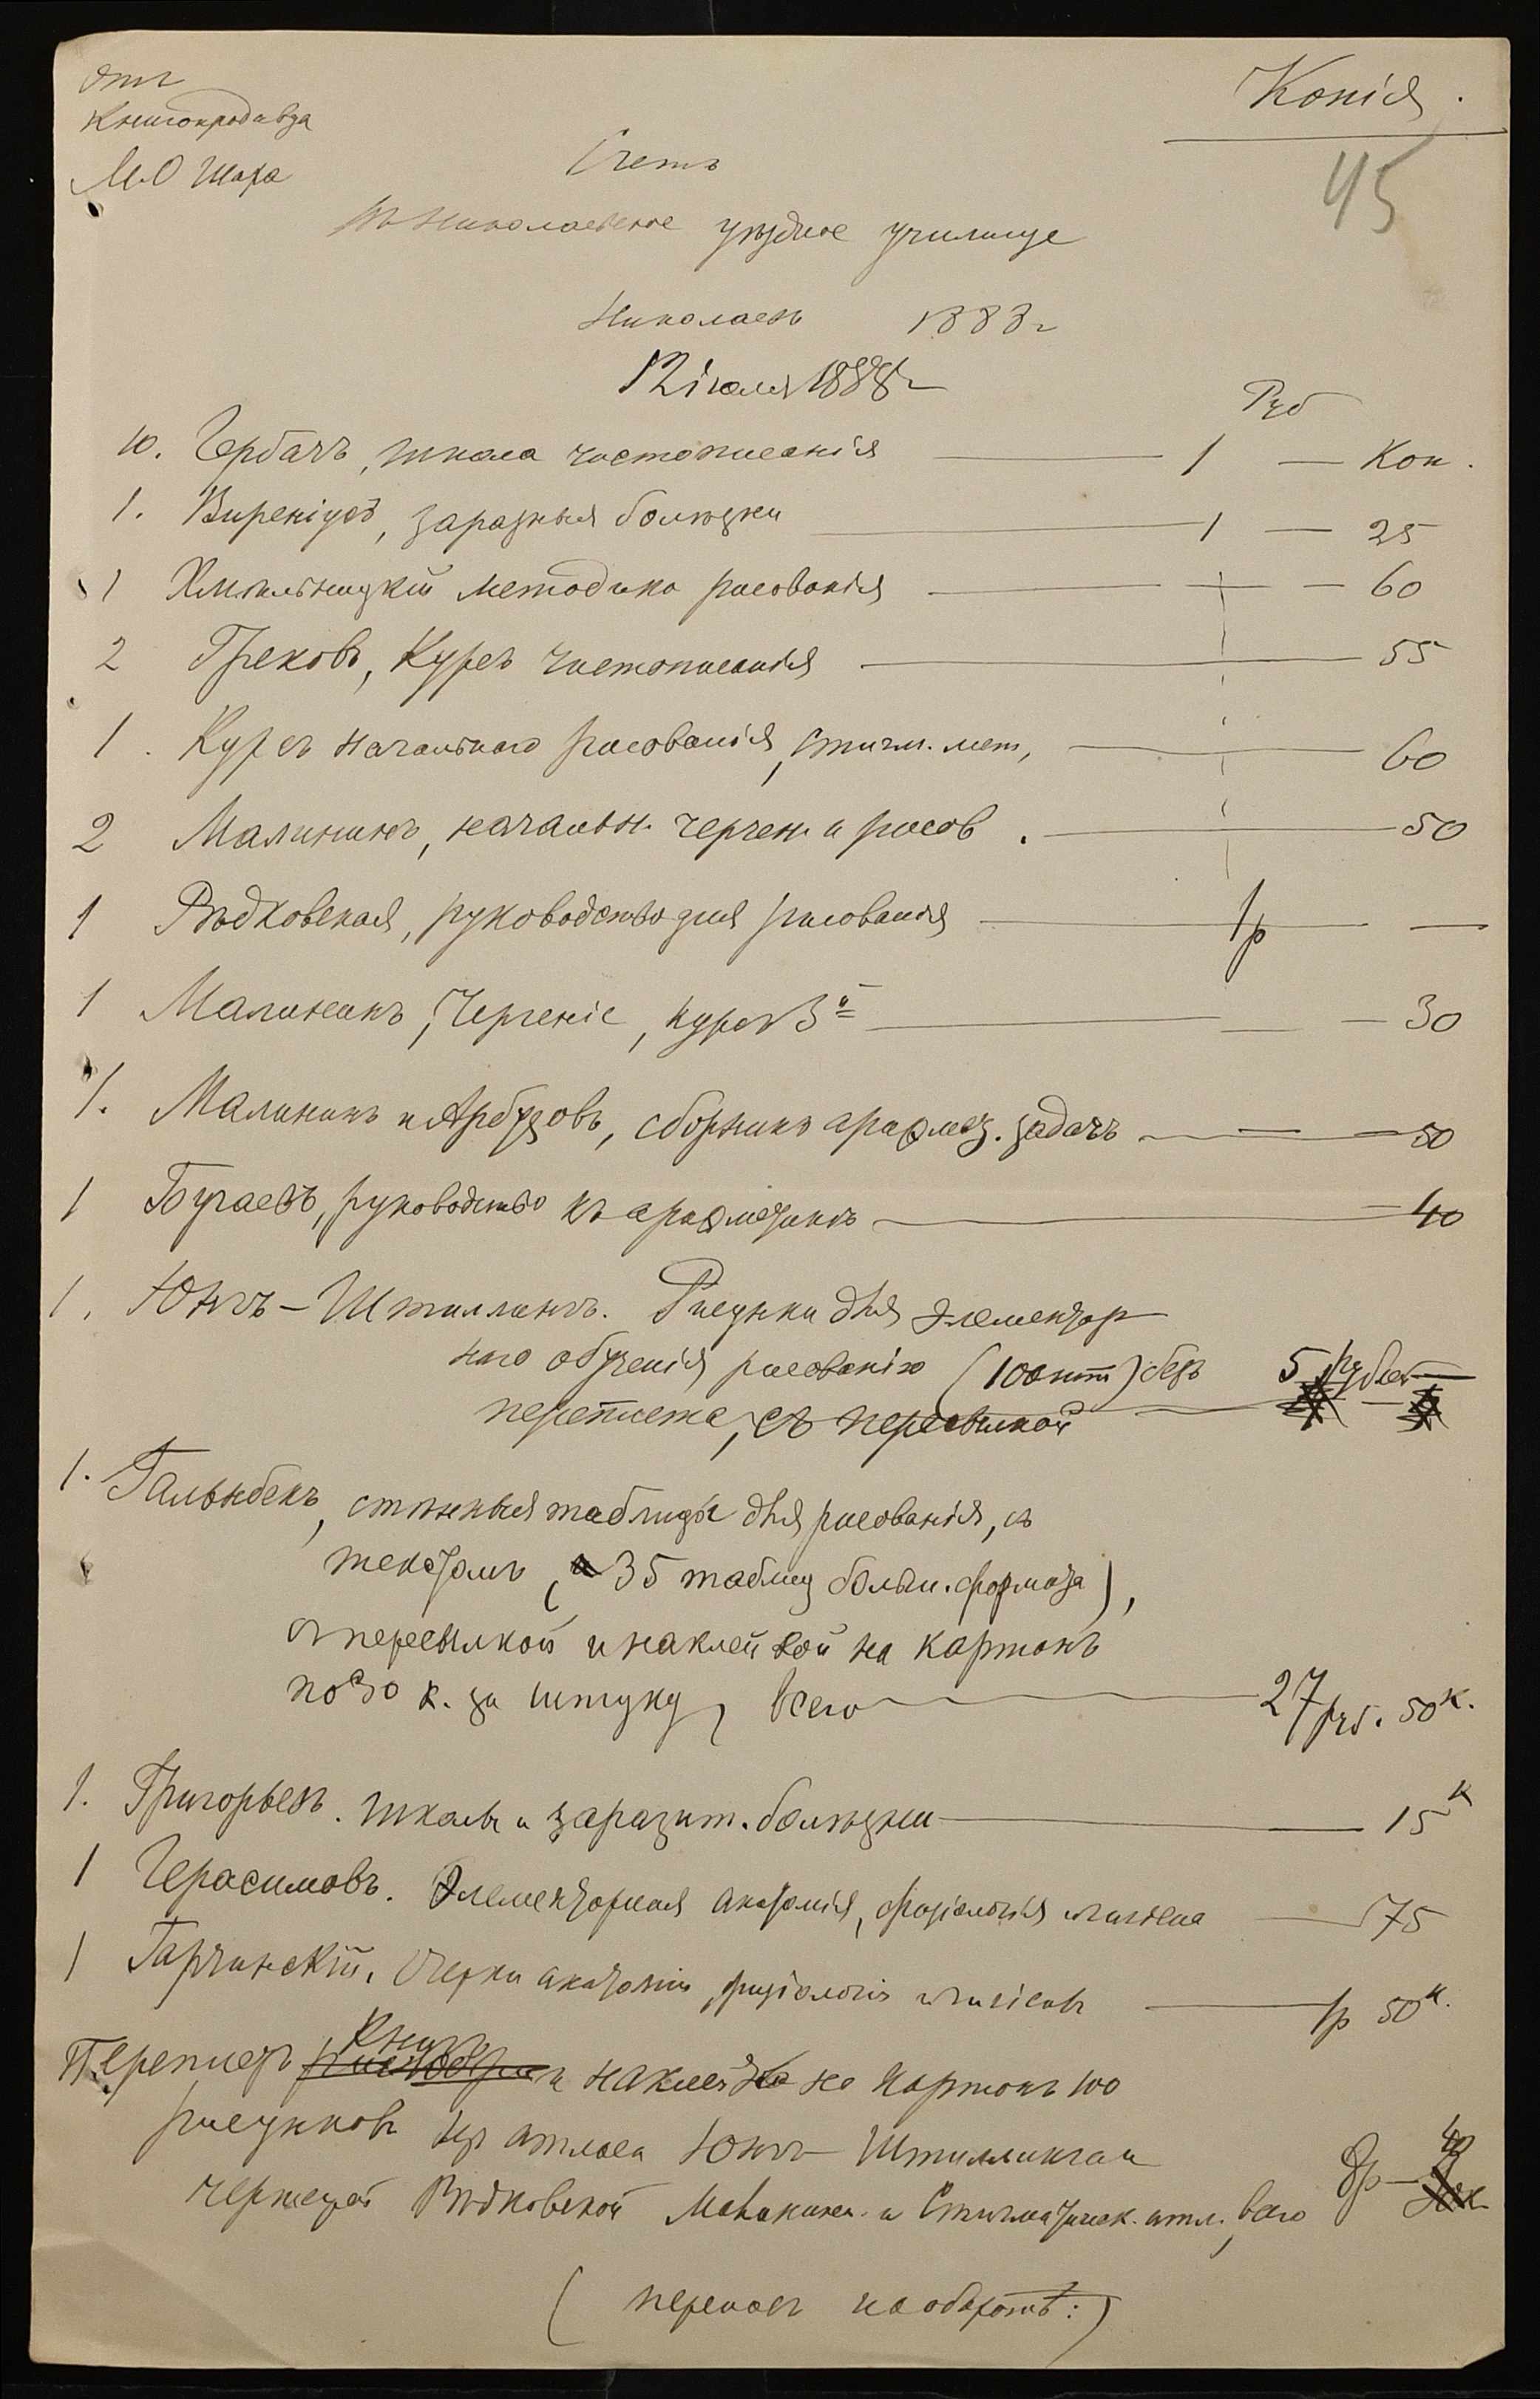 Отъ
Книгопродавца
М.О Шаха
Копія.
45
Счетъ
Въ Николаевское уѣздное училище
Николаевъ 1888 г
12 іюля 1888 г
Руб
10. Гербачъ, школа чистописанія — 1 — Коп.
1. Виреніусъ, заразныя болѣзни — 1 — 25
1 Хмѣльницкій методика рисованія — 60
2 Грековъ, Курсъ чистописанія — 55
1. Курсъ начальнаго рисованія, стигм. мет, — 60
2 Малининъ, начальн. черчен. и рисов. — 50
1 Рѣдковская, руководство для рисованія — 1 р —
1 Малининъ, Черченіе, курсъ 3й — 30
1. Малининъ и Арбузовъ, сборникъ арифмет. задачъ — 50
1 Бугаевъ, руководство къ арифметикѣ — 40
1. Юнгъ-Штиллингъ. Рисунки для элементар
наго обученія рисованію (100 шт) безъ 5 рублей
переплета, съ пересылкой
1. Гальнбекъ, стѣнныя таблицы для рисованія, съ
текстомъ (35 таблиц больш. формата),
съ пересылкой и наклейкой на картонъ
по 30 к. за штуку, всего — 27 руб. 50 к.
1. Григорьевъ. Школы и заразит. болѣзни — 15 к
1 Герасимовъ. Элементарная анатомія, физіологія и гигіена — 75
1 Гарчинскій. Очерки анатоміи, физіологіи и гигіены — 1 р 50 к.
Книгъ
Переплетъ и наклейка на картонъ 100
рисунковъ из атласа Юнгъ Штиллинга и
чертежей Рѣдковской Малинина и Стигматическ. атл., всего 8 р — 40
(переносъ на оборотѣ:)